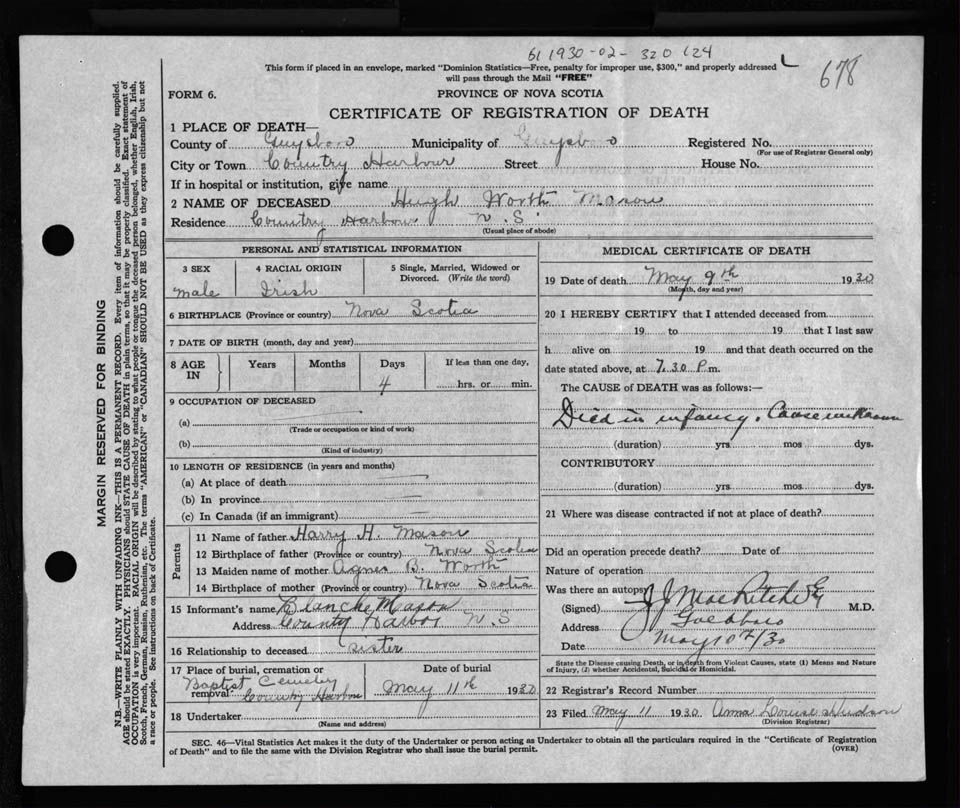 61 1930-02- 320 124
678
This form if placed in an envelope, marked "Dominion Statistics—Free, penalty for improper use, $300," and properly addressed
will pass through the Mail "FREE"
FORM 6.
PROVINCE OF NOVA SCOTIA
CERTIFICATE OF REGISTRATION OF DEATH
1 PLACE OF DEATH—
County of Guysboro Municipality of Guysboro Registered No.
(For use of Registrar General only)
City or Town Country Harbour Street House No.
If in hospital or institution, give name
2 NAME OF DECEASED Hugh Worth Mason
Residence Country Harbour N.S.
(Usual place of abode)
PERSONAL AND STATISTICAL INFORMATION
3 SEX 4 RACIAL ORIGIN 5 Single, Married, Widowed or
Divorced. (Write the word)
male Irish
6 BIRTHPLACE (Province or country) Nova Scotia
7 DATE OF BIRTH (month, day and year)
8 AGE IN Years Months Days If less than one day,
4 hrs. or min.
9 OCCUPATION OF DECEASED
(a)
(Trade or occupation or kind of work)
(b)
(Kind of industry)
10 LENGTH OF RESIDENCE (in years and months)
(a) At place of death
(b) In province
(c) In Canada (if an immigrant)
Parents
11 Name of father Harry H. Mason
12 Birthplace of father (Province or country) Nova Scotia
13 Maiden name of mother Agnes B. Worth
14 Birthplace of mother (Province or country) Nova Scotia
15 Informant's name Blanche Mason
Address County Harbor N.S
16 Relationship to deceased sister
17 Place of burial, cremation or removal Baptist Cemetery Country Harbor
Date of burial
May 11th 1930
18 Undertaker
(Name and address)
MEDICAL CERTIFICATE OF DEATH
19 Date of death May 9th 1930
(Month, day and year)
20 I HEREBY CERTIFY that I attended deceased from
19 to 19 that I last saw
h alive on 19 and that death occurred on the
date stated above, at 7.30 P.m.
The CAUSE of DEATH was as follows:—
Died in infancy. Cause unknown
(duration) yrs. mos. dys.
CONTRIBUTORY
(duration) yrs. mos. dys.
21 Where was disease contracted if not at place of death?
Did an operation precede death? Date of
Nature of operation
Was there an autopsy
(Signed) J J MacRitchie M.D.
Address Goldboro
Date May 10th/30
State the Disease causing Death, or in death from Violent Causes, state (1) Means and Nature
of Injury, (2) whether Accidental, Suicidal or Homicidal.
22 Registrar's Record Number
23 Filed May 11 1930 Anna Louise Hudson
(Division Registrar)
SEC. 46—Vital Statistics Act makes it the duty of the Undertaker or person acting as Undertaker to obtain all the particulars required in the "Certificate of Registration
of Death" and to file the same with the Division Registrar who shall issue the burial permit.
(OVER)
MARGIN RESERVED FOR BINDING
N.B.—WRITE PLAINLY WITH UNFADING INK—THIS IS A PERMANENT RECORD. Every item of information should be carefully supplied.
AGE should be stated EXACTLY. PHYSICIANS should STATE CAUSE OF DEATH in plain terms, so that it may be properly classified. Exact statement of
OCCUPATION is very important. RACIAL ORIGIN will be described by stating to what people or tongue the deceased person belonged, whether English, Irish,
Scotch, French, German, Russian, Ruthenian, etc. The terms "AMERICAN" or "CANADIAN" SHOULD NOT BE USED as they express citizenship but not
a race or people. See instructions on back of Certificate.